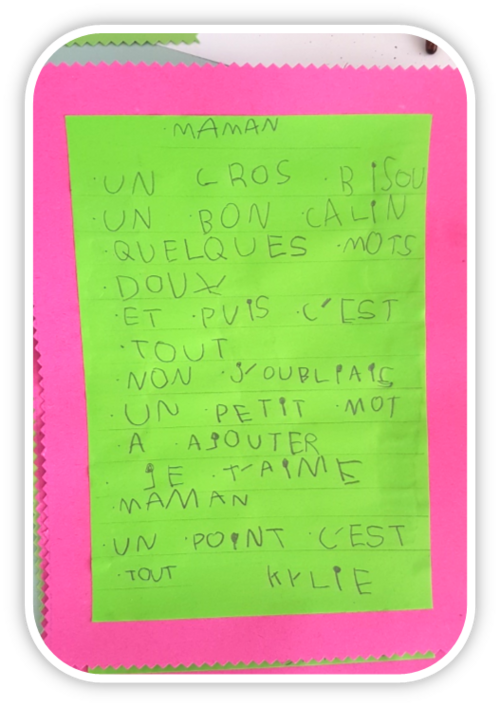 MAMAN
UN GROS BISOU
UN BON CALIN
QUELQUES MOTS
DOUX
ET PUIS C'EST
TOUT
NON J'OUBLIAIS
UN PETIT MOT
A AJOUTER
JE T'AIME
MAMAN
UN POINT C'EST
TOUT KYLIE